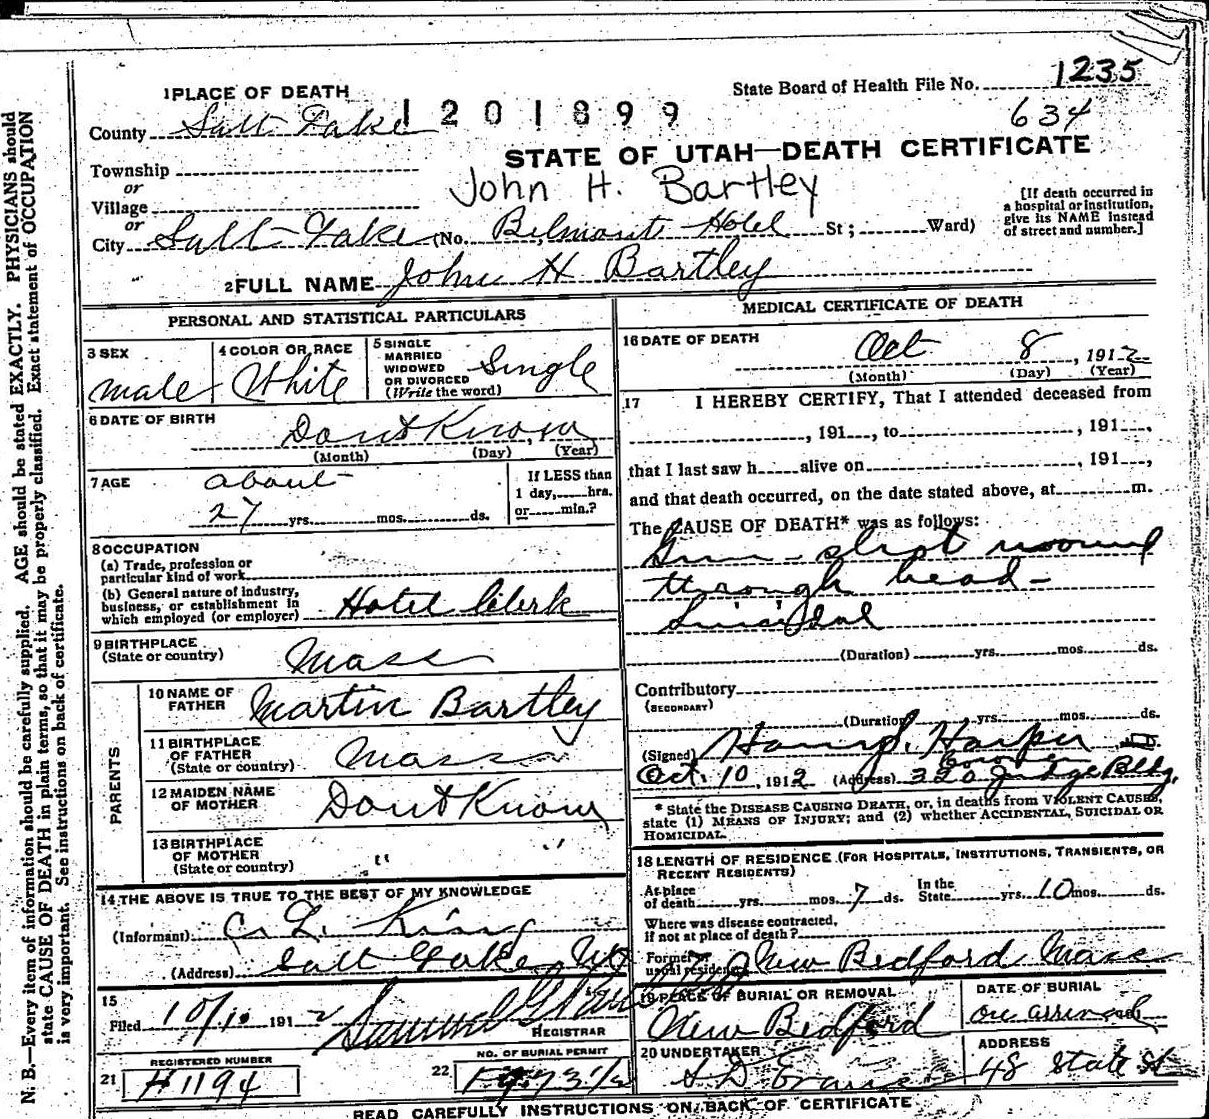 State Board of Health File No. 1235
634
1 PLACE OF DEATH
1201899
County Salt Lake
STATE OF UTAH—DEATH CERTIFICATE
Township
or
John H. Bartley
Village
or
City Salt Lake (No. Belmont Hotel St; Ward)
[If death occurred in
a hospital or institution,
give its NAME instead
of street and number.]
2 FULL NAME John H Bartley
PERSONAL AND STATISTICAL PARTICULARS
3 SEX
male
4 COLOR OR RACE
White
5 SINGLE
MARRIED
WIDOWED
OR DIVORCED
(Write the word)
Single
6 DATE OF BIRTH
Dont Know
(Month) (Day) (Year)
7 AGE
about
27 yrs. mos. ds.
If LESS than
1 day, hrs.
or min.?
8 OCCUPATION
(a) Trade, profession or
particular kind of work
(b) General nature of industry,
business, or establishment in
which employed (or employer) Hotel Clerk
9 BIRTHPLACE
(State or country) Mass
PARENTS
10 NAME OF
FATHER Martin Bartley
11 BIRTHPLACE
OF FATHER
(State or country) Mass
12 MAIDEN NAME
OF MOTHER Dont Know
13 BIRTHPLACE
OF MOTHER
(State or country) " "
14 THE ABOVE IS TRUE TO THE BEST OF MY KNOWLEDGE
(Informant)
(Address) Salt Lake
15
Filed 10/10 1912
REGISTRAR
REGISTERED NUMBER
21 H1194
NO. OF BURIAL PERMIT
22
MEDICAL CERTIFICATE OF DEATH
16 DATE OF DEATH
Oct 8, 1912
(Month) (Day) (Year)
17 I HEREBY CERTIFY, That I attended deceased from
, 191 , to , 191 ,
that I last saw h alive on , 191 ,
and that death occurred, on the date stated above, at m.
The CAUSE OF DEATH* was as follows:
Gun-shot wound
through head-
Suicidal
(Duration) yrs. mos. ds.
Contributory
(SECONDARY)
(Duration) yrs. mos. ds.
(Signed) Harry S. Harper
Coroner
Oct. 10, 1912 (Address) 320 Judge Bldg.
* State the DISEASE CAUSING DEATH, or, in deaths from VIOLENT CAUSES,
state (1) MEANS OF INJURY; and (2) whether ACCIDENTAL, SUICIDAL OR
HOMICIDAL.
18 LENGTH OF RESIDENCE (FOR HOSPITALS, INSTITUTIONS, TRANSIENTS, OR
RECENT RESIDENTS)
At place
of death yrs. mos. 7 ds.
In the
State yrs. 10 mos. ds.
Where was disease contracted,
if not at place of death?
Former or
usual residence New Bedford Mass
19 PLACE OF BURIAL OR REMOVAL
New Bedford
DATE OF BURIAL
on arrival
20 UNDERTAKER
S. D. Evans
ADDRESS
48 State St
READ CAREFULLY INSTRUCTIONS ON BACK OF CERTIFICATE
N. B.—Every item of information should be carefully supplied. AGE should be stated EXACTLY. PHYSICIANS should
state CAUSE OF DEATH in plain terms, so that it may be properly classified. Exact statement of OCCUPATION
is very important. See instructions on back of certificate.